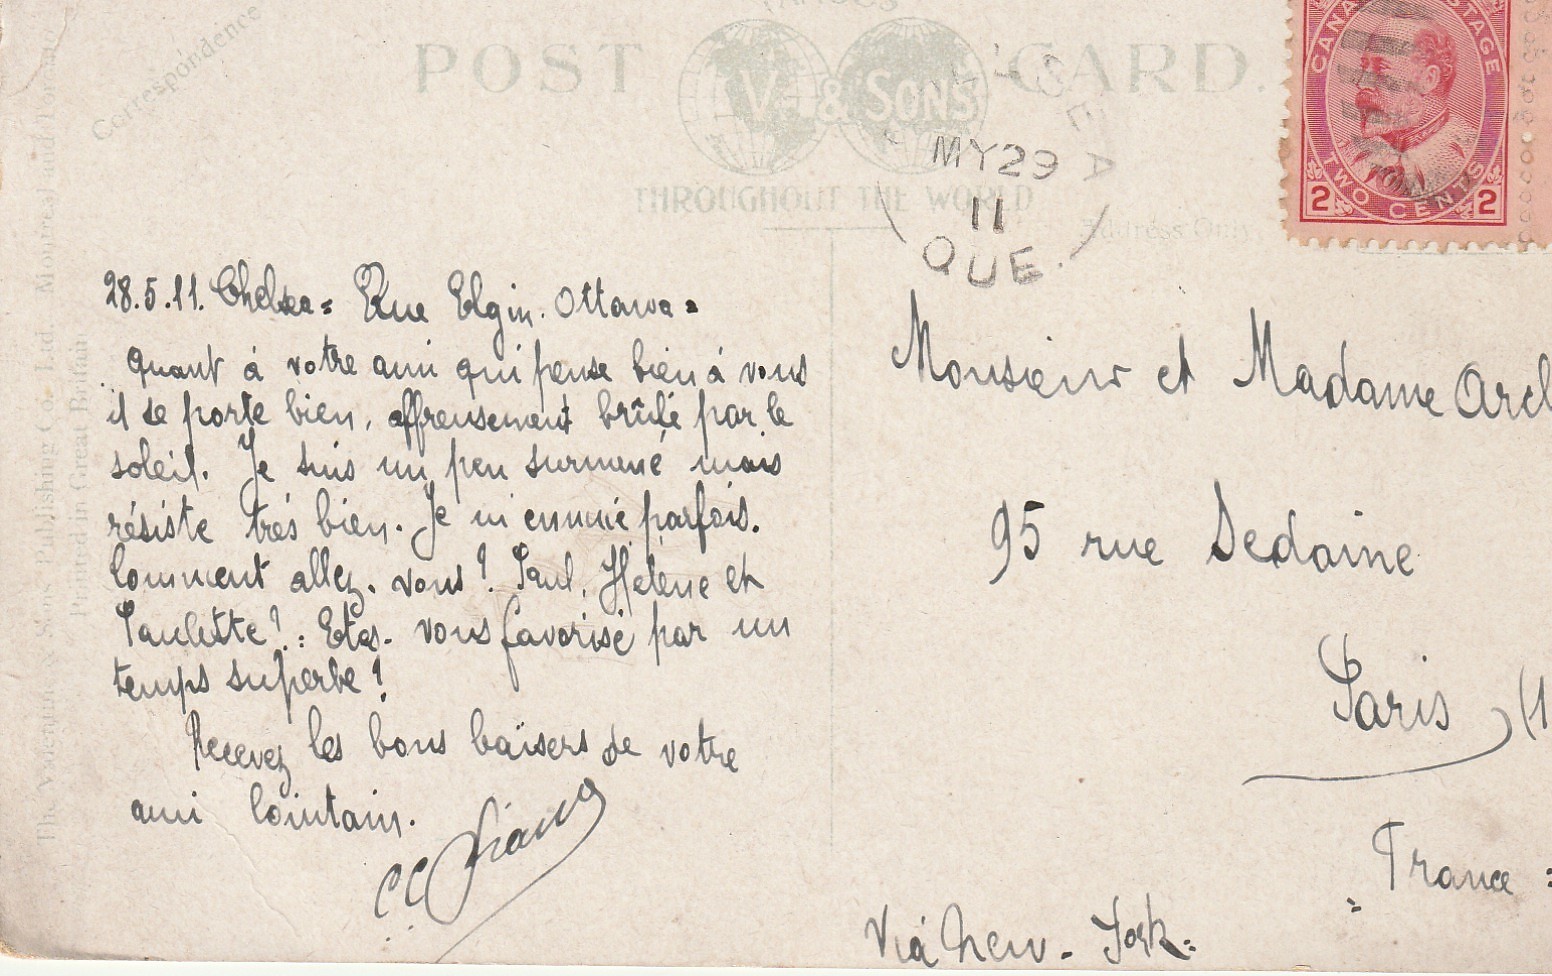 Correspondence
FAMOUS
POST CARD.
V. & SONS
THROUGHOUT THE WORLD
Address Only.
CHELSEA
MY 29
11
QUE.
CANADA POSTAGE
2 TWO CENTS 2
The Valentine & Sons' Publishing Co., Ltd. Montreal and Toronto
Printed in Great Britain
28.5.11. Chelsea = Rue Elgin. Ottawa =
Quant à votre ami qui pense bien à vous
il se porte bien, affreusement brûlé par le
soleil. Je suis un peu surmené mais
résiste très bien. Je m'ennuie parfois.
Comment allez-vous? Paul, Hélène et
Paulette? : Etes-vous favorisé par un
temps superbe?
Recevez les bons baïsers de votre
ami lointain.
Monsieur et Madame
95 rue Sedaine
Paris (1
France =
Via New-York =